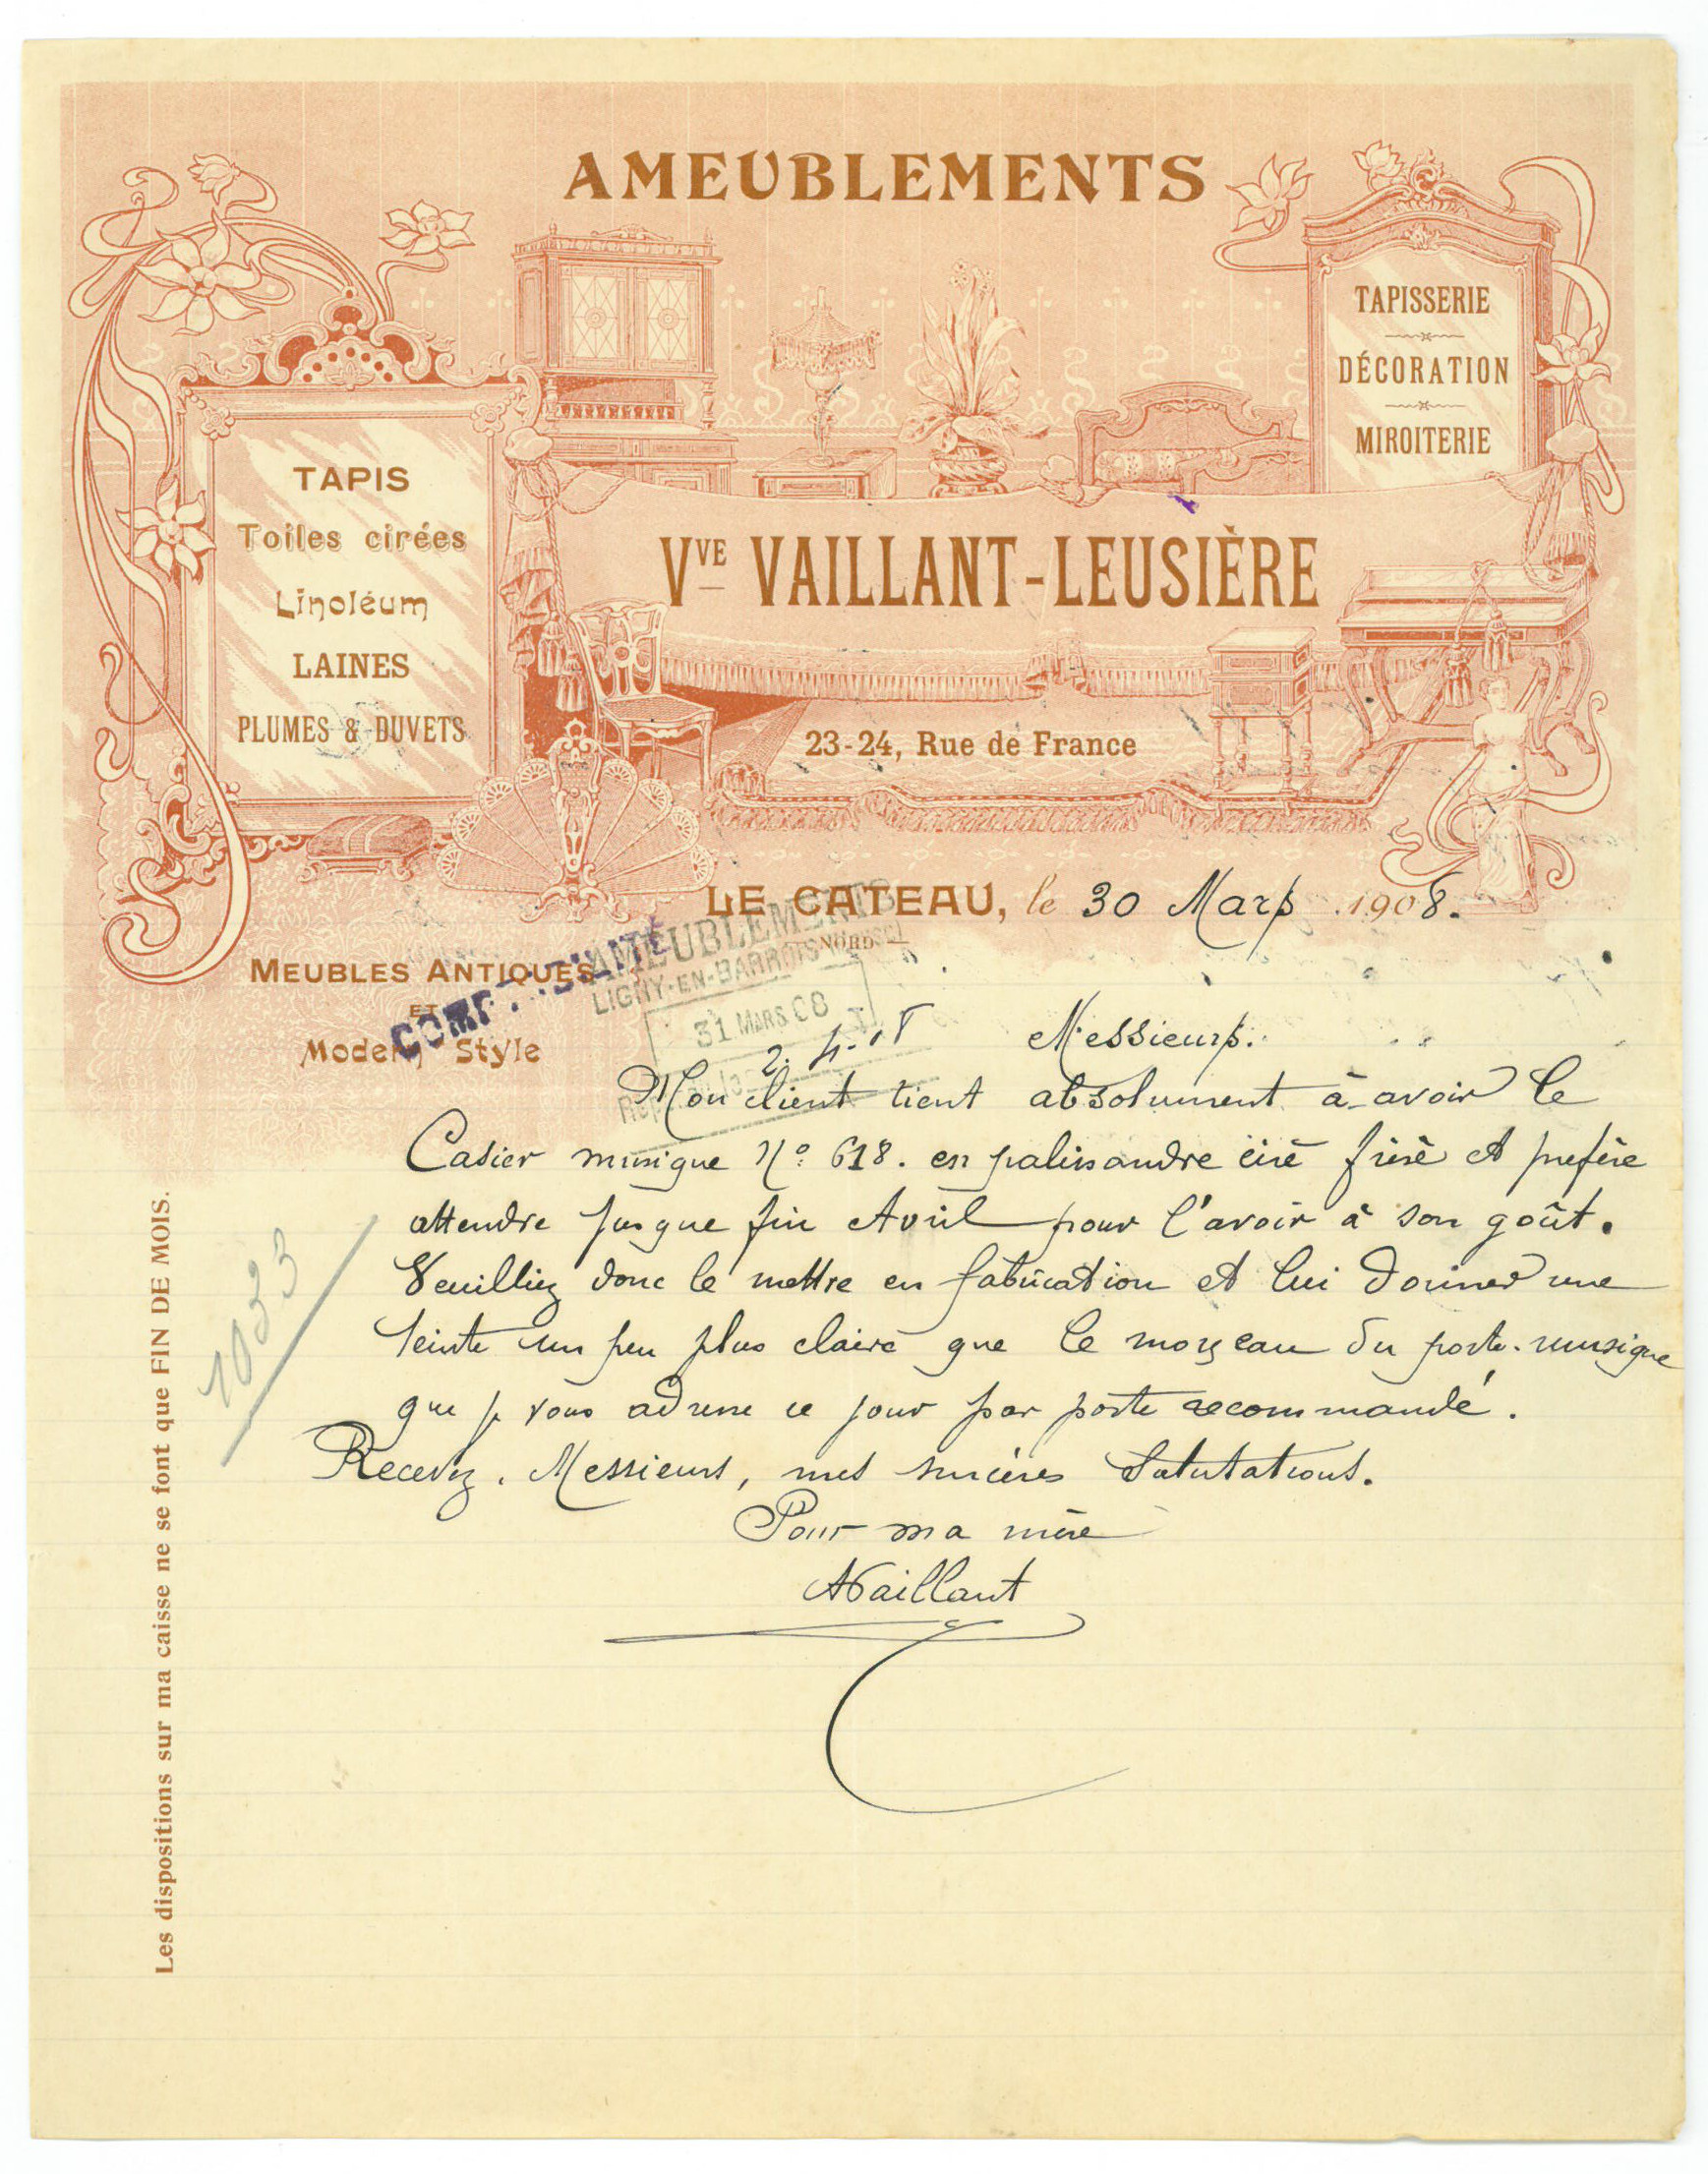 AMEUBLEMENTS
TAPISSERIE
DÉCORATION
MIROITERIE
TAPIS
Toiles cirées
Linoléum
LAINES
PLUMES & DUVETS
VVE VAILLANT-LEUSIÈRE
23-24, Rue de France
LE CATEAU, le 30 Mars 1908.
NORD
MEUBLES ANTIQUES
ET
Modern Style
AMEUBLEMENTS
LIGNY-EN-BARROIS
31 MARS 08
Messieurs.
Mon client tient absolument à avoir le
Casier musique No 618. en palissandre ciré frisé et prefère
attendre jusque fin Avril pour l'avoir à son goût.
Veuilliez donc le mettre en fabrication et lui donner une
teinte un peu plus claire que le morceau du porte-musique
que je vous adresse ce jour par poste recommandé.
Recevez, Messieurs, mes sincères Salutations.
Pour ma mère
AVaillant
10233
Les dispositions sur ma caisse ne se font que FIN DE MOIS.